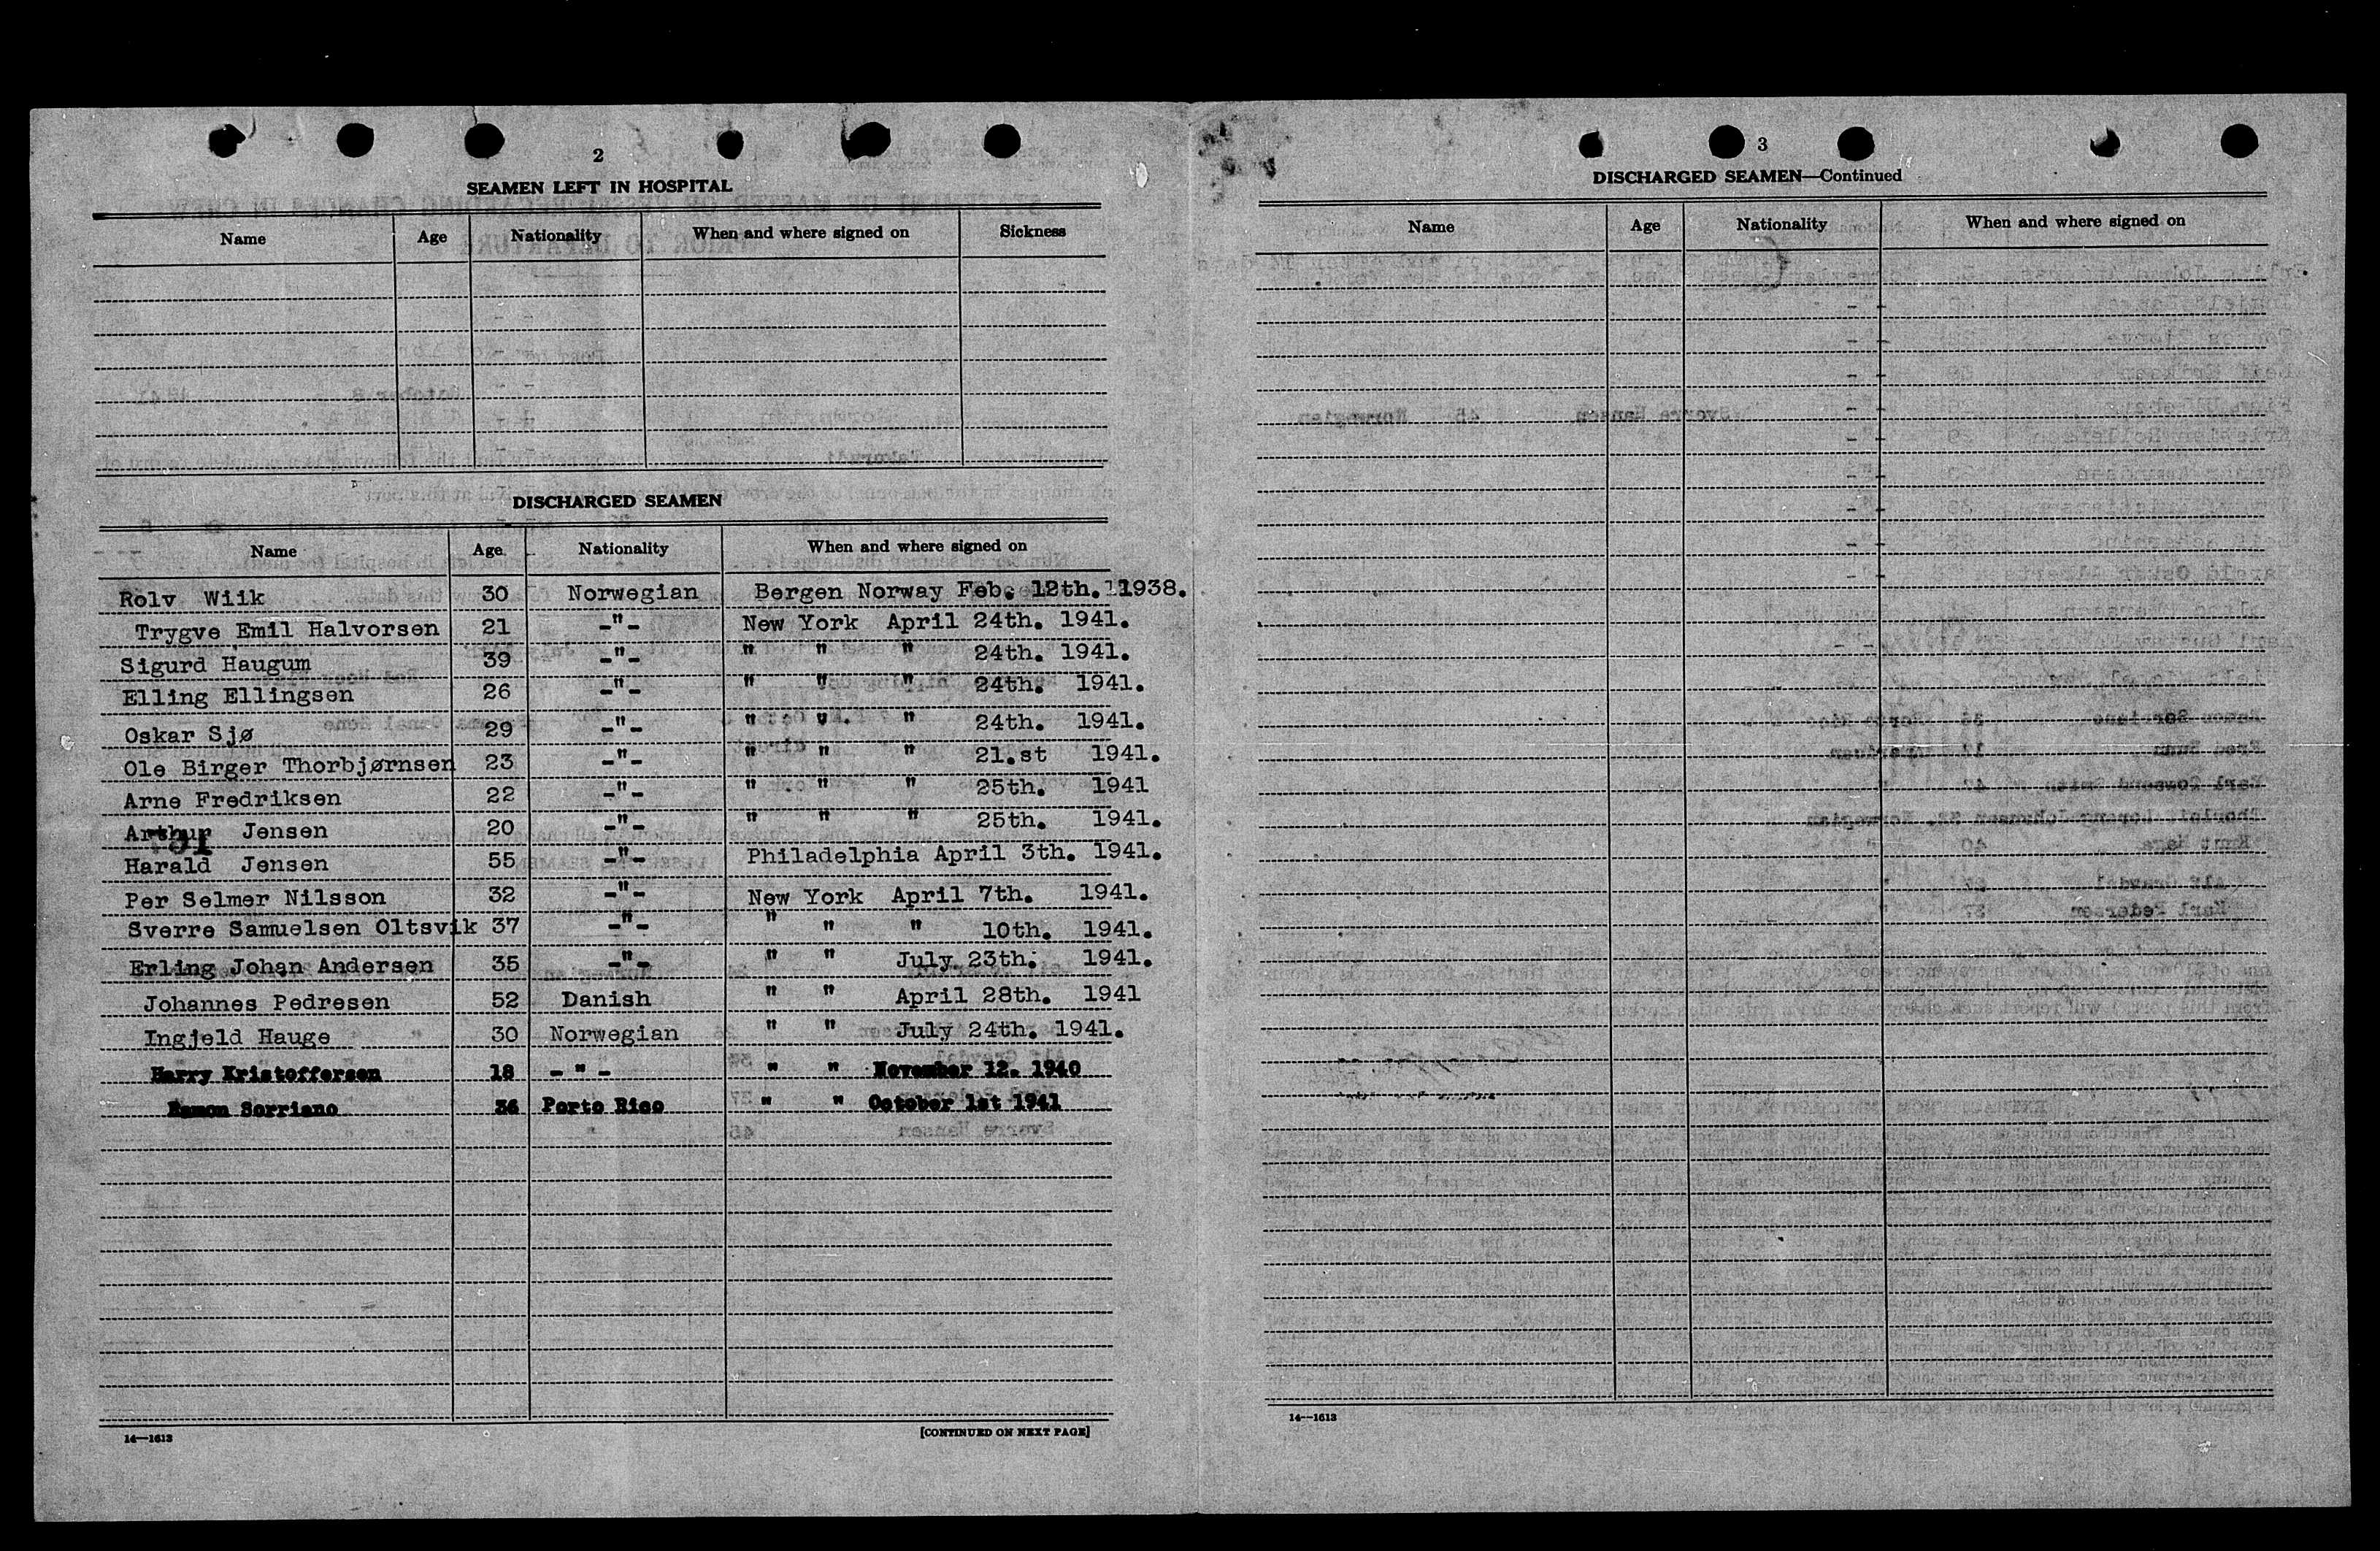 2
SEAMEN LEFT IN HOSPITAL
Name Age Nationality When and where signed on Sickness
DISCHARGED SEAMEN
Name Age. Nationality When and where signed on
Rolv Wiik 30 Norwegian Bergen Norway Feb. 12th. 1938.
Trygve Emil Halvorsen 21 -"- New York April 24th. 1941.
Sigurd Haugum 39 -"- " " " 24th. 1941.
Elling Ellingsen 26 -"- " " " 24th. 1941.
Oskar Sjø 29 -"- " " " 24th. 1941.
Ole Birger Thorbjørnsen 23 -"- " " " 21.st 1941.
Arne Fredriksen 22 -"- " " " 25th. 1941
Arthur Jensen 20 -"- " " " 25th. 1941.
Harald Jensen 55 -"- Philadelphia April 3th. 1941.
Per Selmer Nilsson 32 -"- New York April 7th. 1941.
Sverre Samuelsen Oltsvik 37 -"- " " " 10th. 1941.
Erling Johan Andersen 35 -"- " " July 23th. 1941.
Johannes Pedresen 52 Danish " " April 28th. 1941
Ingjeld Hauge 30 Norwegian " " July 24th. 1941.
Harry Kristoffersen 18 - " - " " November 12. 1940
Ramon Sorriano 36 Porto Rico " " October 1st 1941
14—1613 [CONTINUED ON NEXT PAGE]
3
DISCHARGED SEAMEN—Continued
Name Age Nationality When and where signed on
14—1613